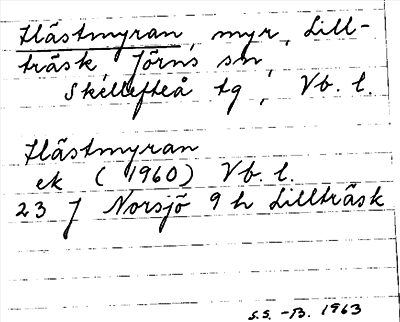 Hästmyran, myr, Lill-
träsk, Jörns sn,
Skellefteå tg, Vb. l.
Hästmyran
ek (1960) Vb. l.
23 J Norsjö 9 h Lillträsk
S.S. -B. 1963